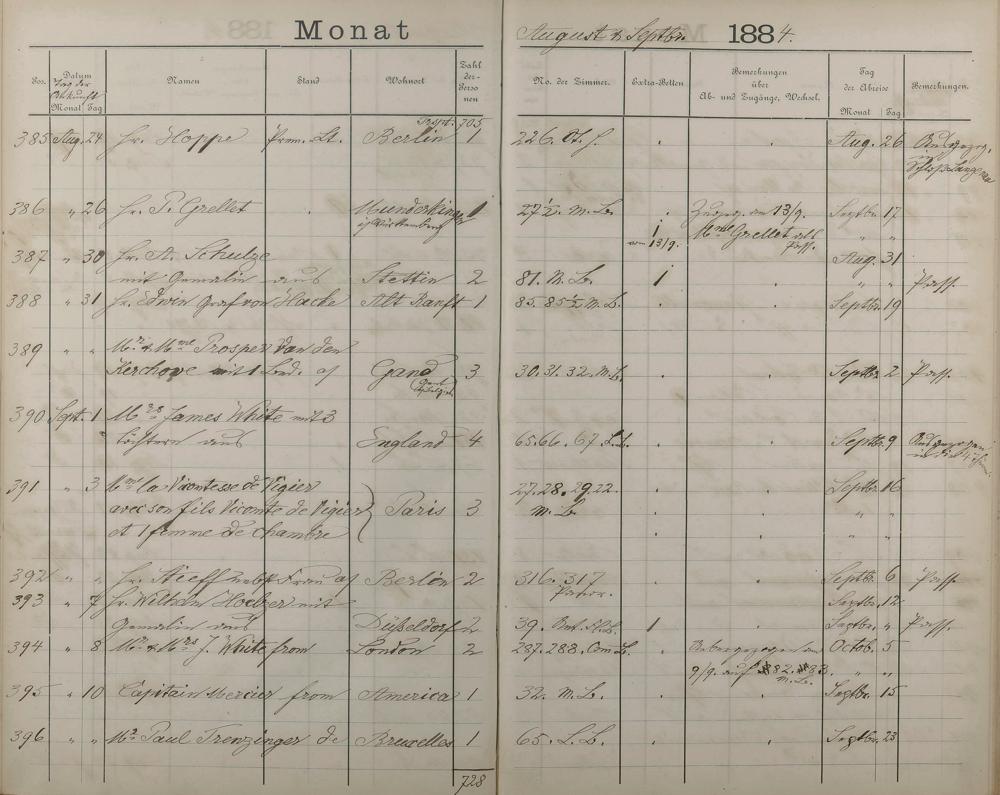 Monat August & Septbr. 1884.
Pos. Datum Namen Stand Wohnort Zahl der Personen No. der Zimmer. Extra-Betten Bemerkungen über Ab- und Zugänge, Wechsel. Tag der Abreise Bemerkungen.
Tag der Ankunft
Monat Tag Monat Tag
Trspt: 705
385 Aug. 24 Hr. Hoppe Prem. Lt. Berlin 1 226. Ot. H. Aug. 26
386 " 26 Hr. P. Grellet Munderkingen 1 27 1/2. M. B. Zugeg. am 13/9. Septbr. 17
i/Württemberg 1 Mme Grellet " "
vom 13/9. Pass.
387 " 30 Hr. A. Schulze Aug. 31
mit Gemalin aus Stettin 2 81. M. B. 1 " " Pass.
388 " 31 Hr. Edwin Graf von Hacke Alt Ranft 1 85. 85 1/2 M. B. Septbr. 19
389 " " Mr. & Mme Prosper Van den
Kerchove mit 1 Bed. of Gand 3 30. 31. 32. M. B. Septbr. 2 Pass.
390 Sept. 1 Mrs James White mit 3
Töchtern aus England 4 65. 66. 67. L. B. Septbr. 9
391 " 3 Mme la Vicomtesse de Vigier 27. 28. 29. 22. Septbr. 16
avec son fils Vicomte de Vigier Paris 3 M. B. " "
et 1 femme de chambre " "
392 " " Hr. Steeff nebst Frau of Berlin 2 316. 317 Septbr. 6 Pass.
393 " 7 Hr. Wilhelm Hoelzer mit Septbr. 12
Gemalin aus Düsseldorf 2 39. 1 Septbr. " Pass.
394 " 8 Mr. & Mrs J. White from London 2 287. 288. Com. B. Octob. 5
9/9. auf # 82. # 83. " "
M. B.
395 " 10 Capitain Mercier from America 1 32. M. B. Septbr. 15
396 " " Mr. Paul Trenzinger de Bruxelles 1 65. L. B. Septbr. 23
728